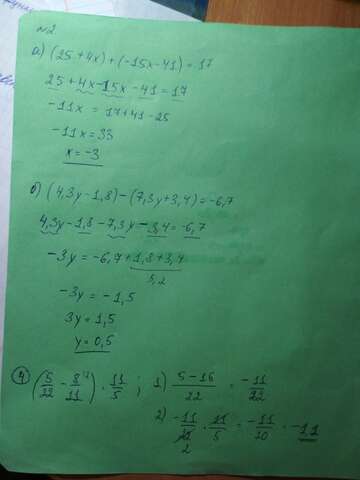 №2
а) (25 + 4x) + (-15x - 41) = 17
25 + 4x - 15x - 41 = 17
-11x = 17 + 41 - 25
-11x = 33
x = -3
б) (4,3y - 1,8) - (7,3y + 3,4) = -6,7
4,3y - 1,8 - 7,3y - 3,4 = -6,7
-3y = -6,7 + 1,8 + 3,4
5,2
-3y = -1,5
3y = 1,5
y = 0,5
④ (5/22 - 8/11 ^(2)) · 11/5 ; 1) (5-16)/22 = -11/22
2) -11/22 · 11/5 = -11/10 = -1,1
2